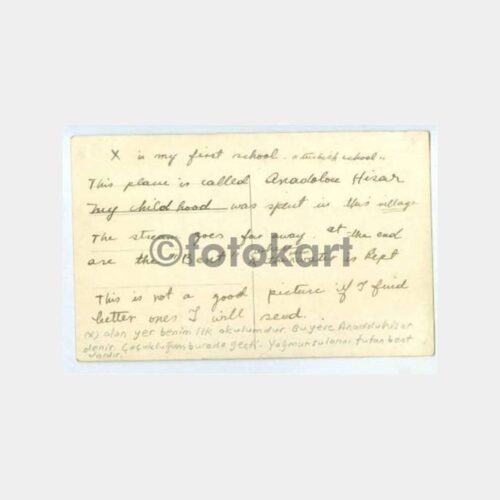 X is my first school - a turkish school -
This place is called Anadolou Hisar
My childhood was spent in this village
The stream goes far away. at the end
are the "Bent" the water is kept
©fotokart
This is not a good picture if I find
better ones I will send.
(x) olan yer benim ilk okulumdur. Bu yere Anadoluhisar
denir. Çocukluğum burada geçti. Yağmur sularını tutan bent
vardır.